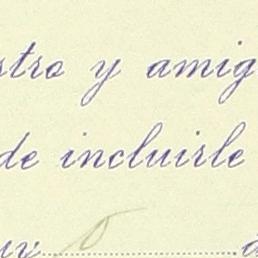 stro y amig
de incluirle